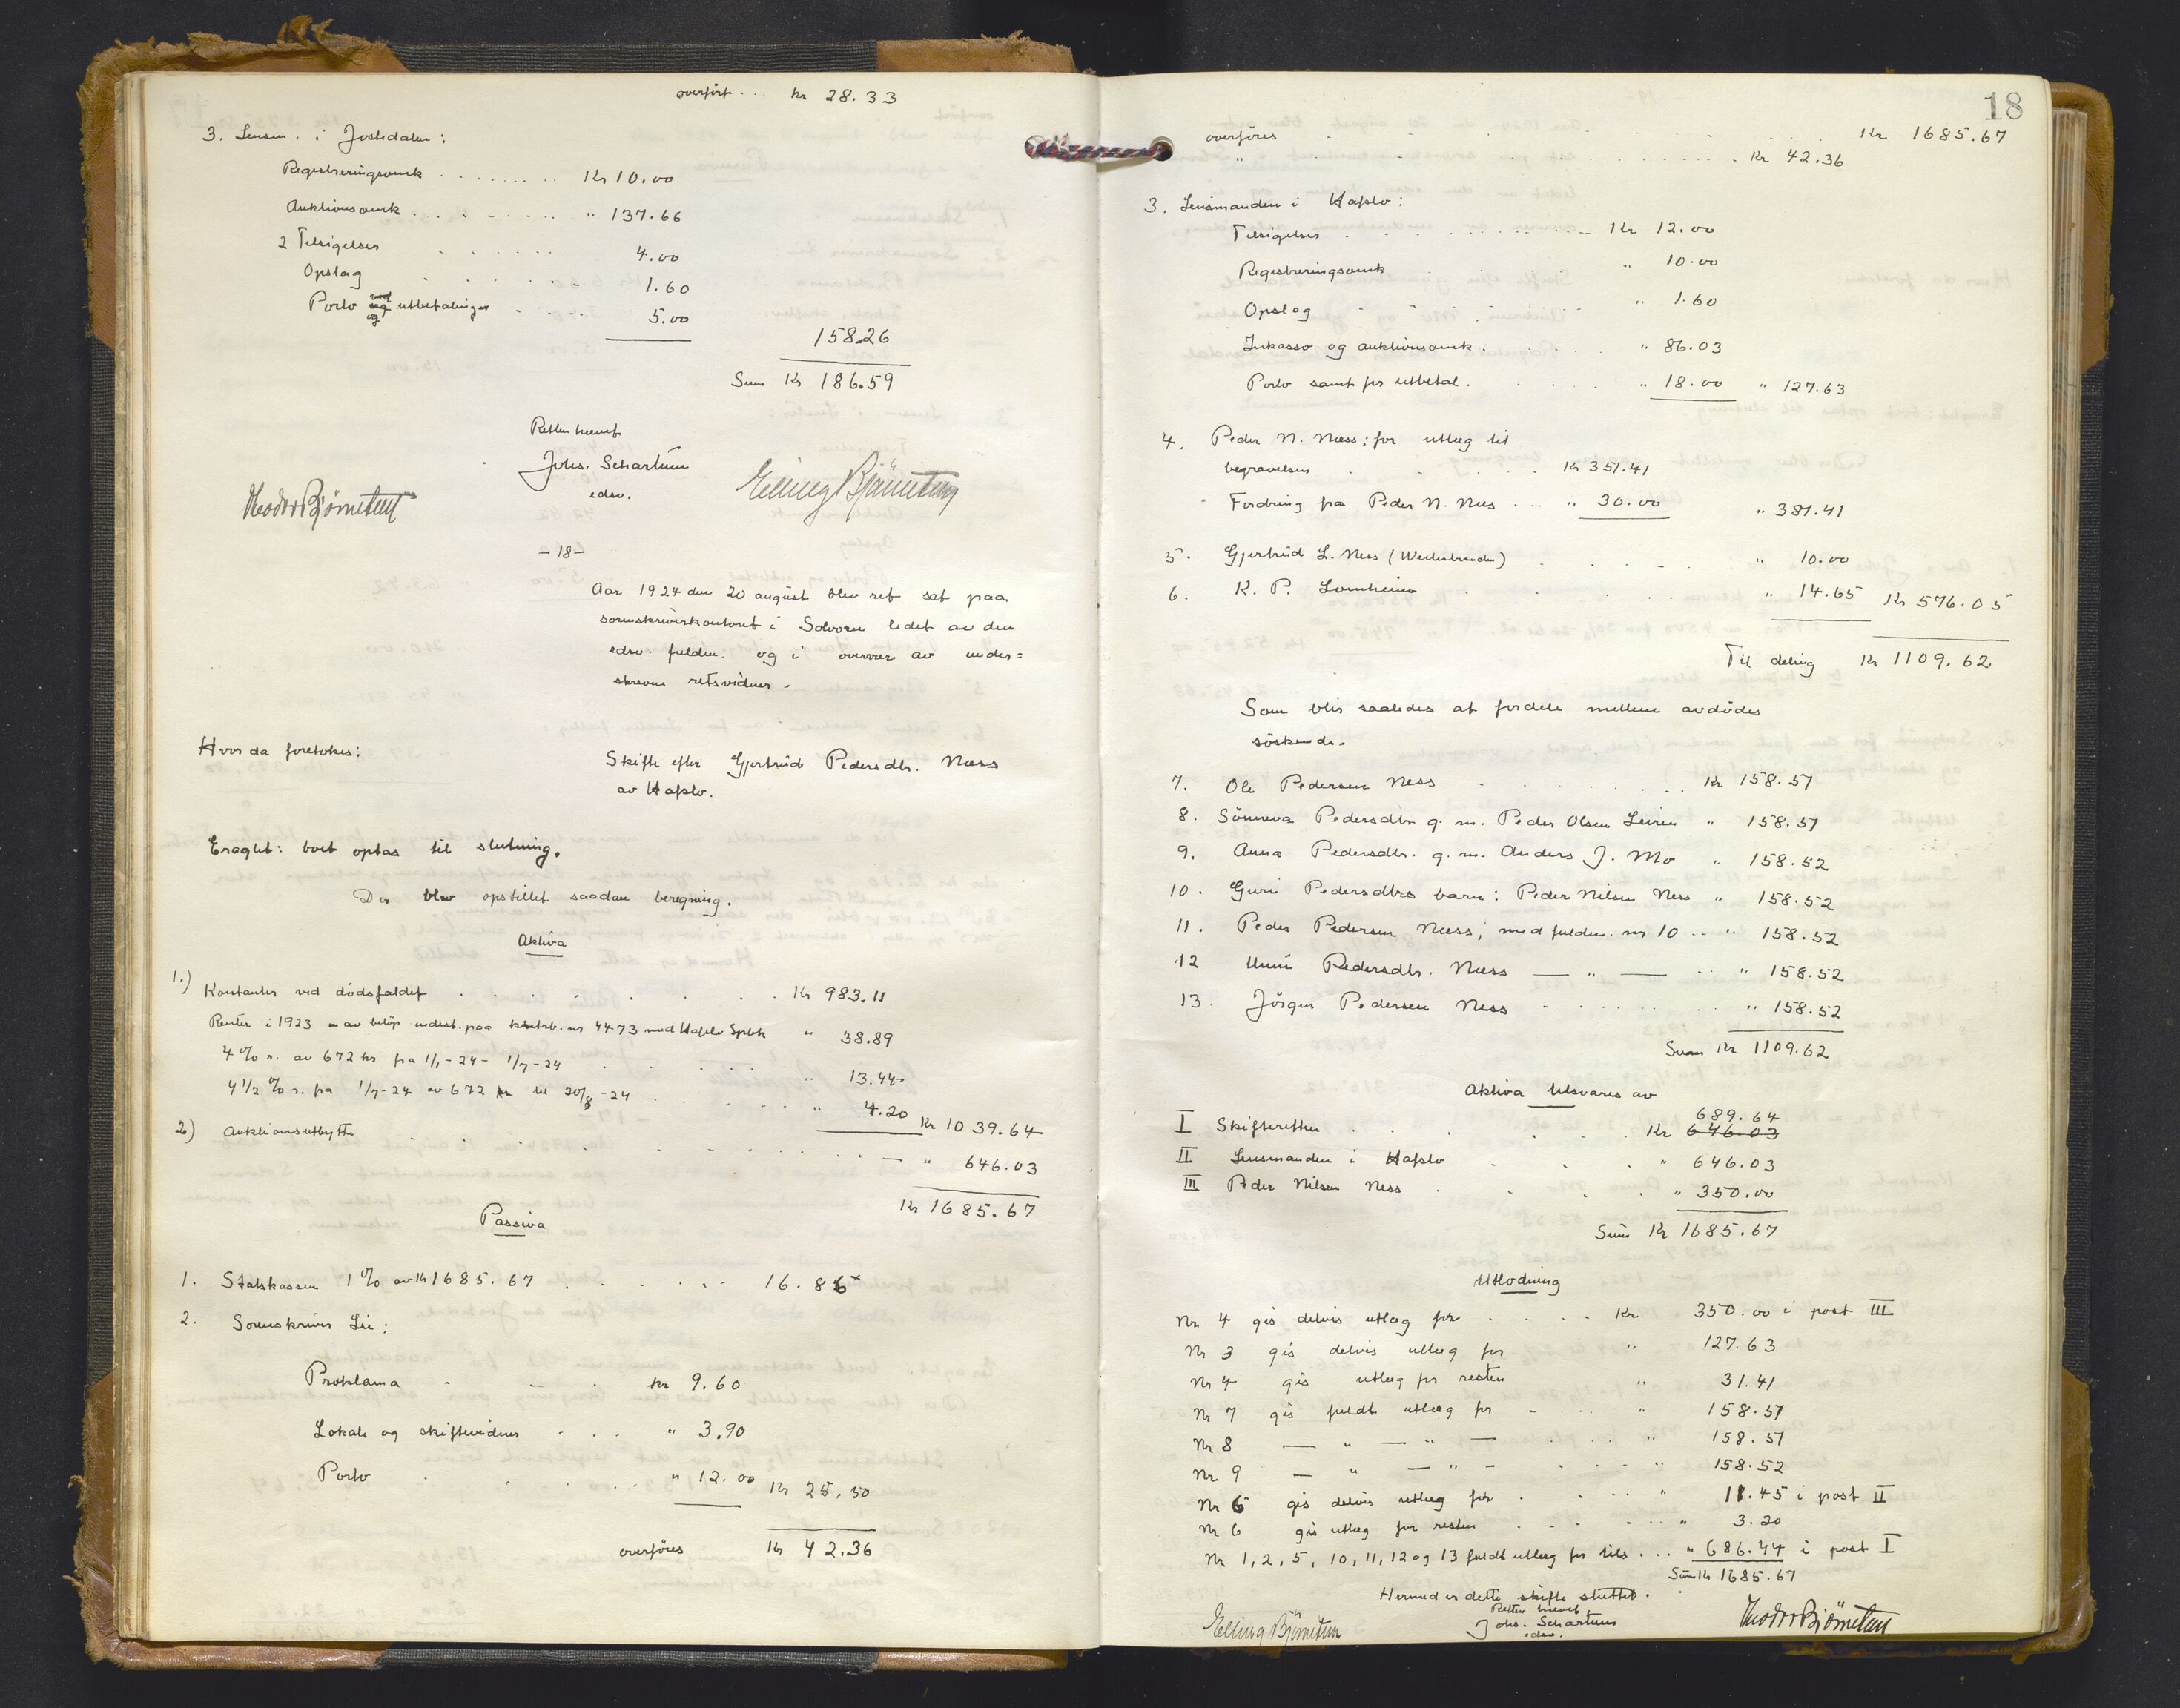 overført ... kr 28.33
3. Lensm. i Jostedalen:
Registreringsomk ........ Kr 10.00
Auktionsomk ........ " 137.66
2 Tilsigelser ...... 4.00
Opslag ...... 1.60
Porto ved og utbetalinger .... 5.00
158.26
Sum Kr 186.59
Retten hævet
Johs. Schartum
edsv.
Theodor Bjørnetun
Elling Bjørnetun
-18-
Aar 1924 den 20 august blev ret sat paa
sorenskriverkontoret i Solvorn ledet av den
edsv. fuldm. og i overvær av under=
skrevne retsvidner.
Hvor da foretokes:
Skifte efter Gjertrud Pedersdtr. Næss
av Hafslo.
Eragtet: boet optas til slutning.
Der blev opstillet saadan beregning.
Aktiva
1.) Kontanter ved dødsfaldet ........ Kr 983.11
Renter i 1923 av beløp indest. paa kontrab. nr 4473 med Hafslo Spbk " 38.89
4 % r. av 672 kr fra 1/1-24 - 1/7-24 ...... " 13.44
4 1/2 % r. fra 1/7-24 av 672 kr til 20/8-24 ...... " 4.20 Kr 1039.64
2) Auktionsutbytte ........ " 646.03
Kr 1685.67
Passiva
1. Statskassen 1 % av kr 1685.67 ...... 16.86
2. Sorenskriver Lie:
Proklama . - . kr 9.60
Lokale og skiftevidner ... " 3.90
Porto ..... " 12.00 Kr 25.50
overføres Kr 42.36
18
overføres ........ Kr 1685.67
" ........ Kr 42.36
3. Lensmanden i Hafslo:
Tilsigelser ........ Kr 12.00
Registreringsomk .... " 10.00
Opslag .... " 1.60
Inkasso og auktionsomk .... " 86.03
Porto samt for utbetal. .... " 18.00 " 127.63
4. Peder N. Næss: for utlæg til
begravelsen .... Kr 351.41
Fordring fra Peder N. Næs ... " 30.00 " 381.41
5. Gjertrud L. Ness (Westerbranden) .... " 10.00
6. K. P. Lomheim .... " 14.65 Kr 576.05
Til deling Kr 1109.62
Som blir saaledes at fordele mellem avdødes
søskende.
7. Ole Pedersen Ness ........ Kr 158.51
8. Sønneva Pedersdtr g. m. Peder Olsen Leiren " 158.51
9. Anna Pedersdtr. g. m. Anders J. Mo " 158.52
10. Guri Pedersdtrs barn: Peder Nilsen Ness " 158.52
11. Peder Pedersen Næss; med fuldm. nr 10 .. " 158.52
12 Unni Pedersdtr. Næss — " — .. " 158.52
13. Jörgen Pedersen Ness ...... " 158.52
Sum Kr 1109.62
Aktiva utsvares av
689.64
I Skifteretten ...... Kr 646.03
II Lensmanden i Hafslo .... " 646.03
III Peder Nilsen Ness .... " 350.00
Sum Kr 1685.67
Utlodning
Nr 4 gis delvis utlæg for .... Kr 350.00 i post III
Nr 3 gis delvis utlæg for " 127.63
Nr 4 gis utlæg for resten " 31.41
Nr 7 gis fuldt utlæg for - ... " 158.51
Nr 8 — " — " — .... " 158.51
Nr 9 — " — " - .... " 158.52
Nr 6 gis delvis utlæg for .... " 11.45 i post II
Nr 6 gis utlæg for resten .... " 3.20
Nr 1, 2, 5, 10, 11, 12 og 13 fuldt utlæg for tils ... " 686.44 i post I
Sum Kr 1685.67
Hermed er dette skifte sluttet.
Retten hævet
Johs. Schartum
edsv.
Elling Bjørnetun
Theodor Bjørnetun